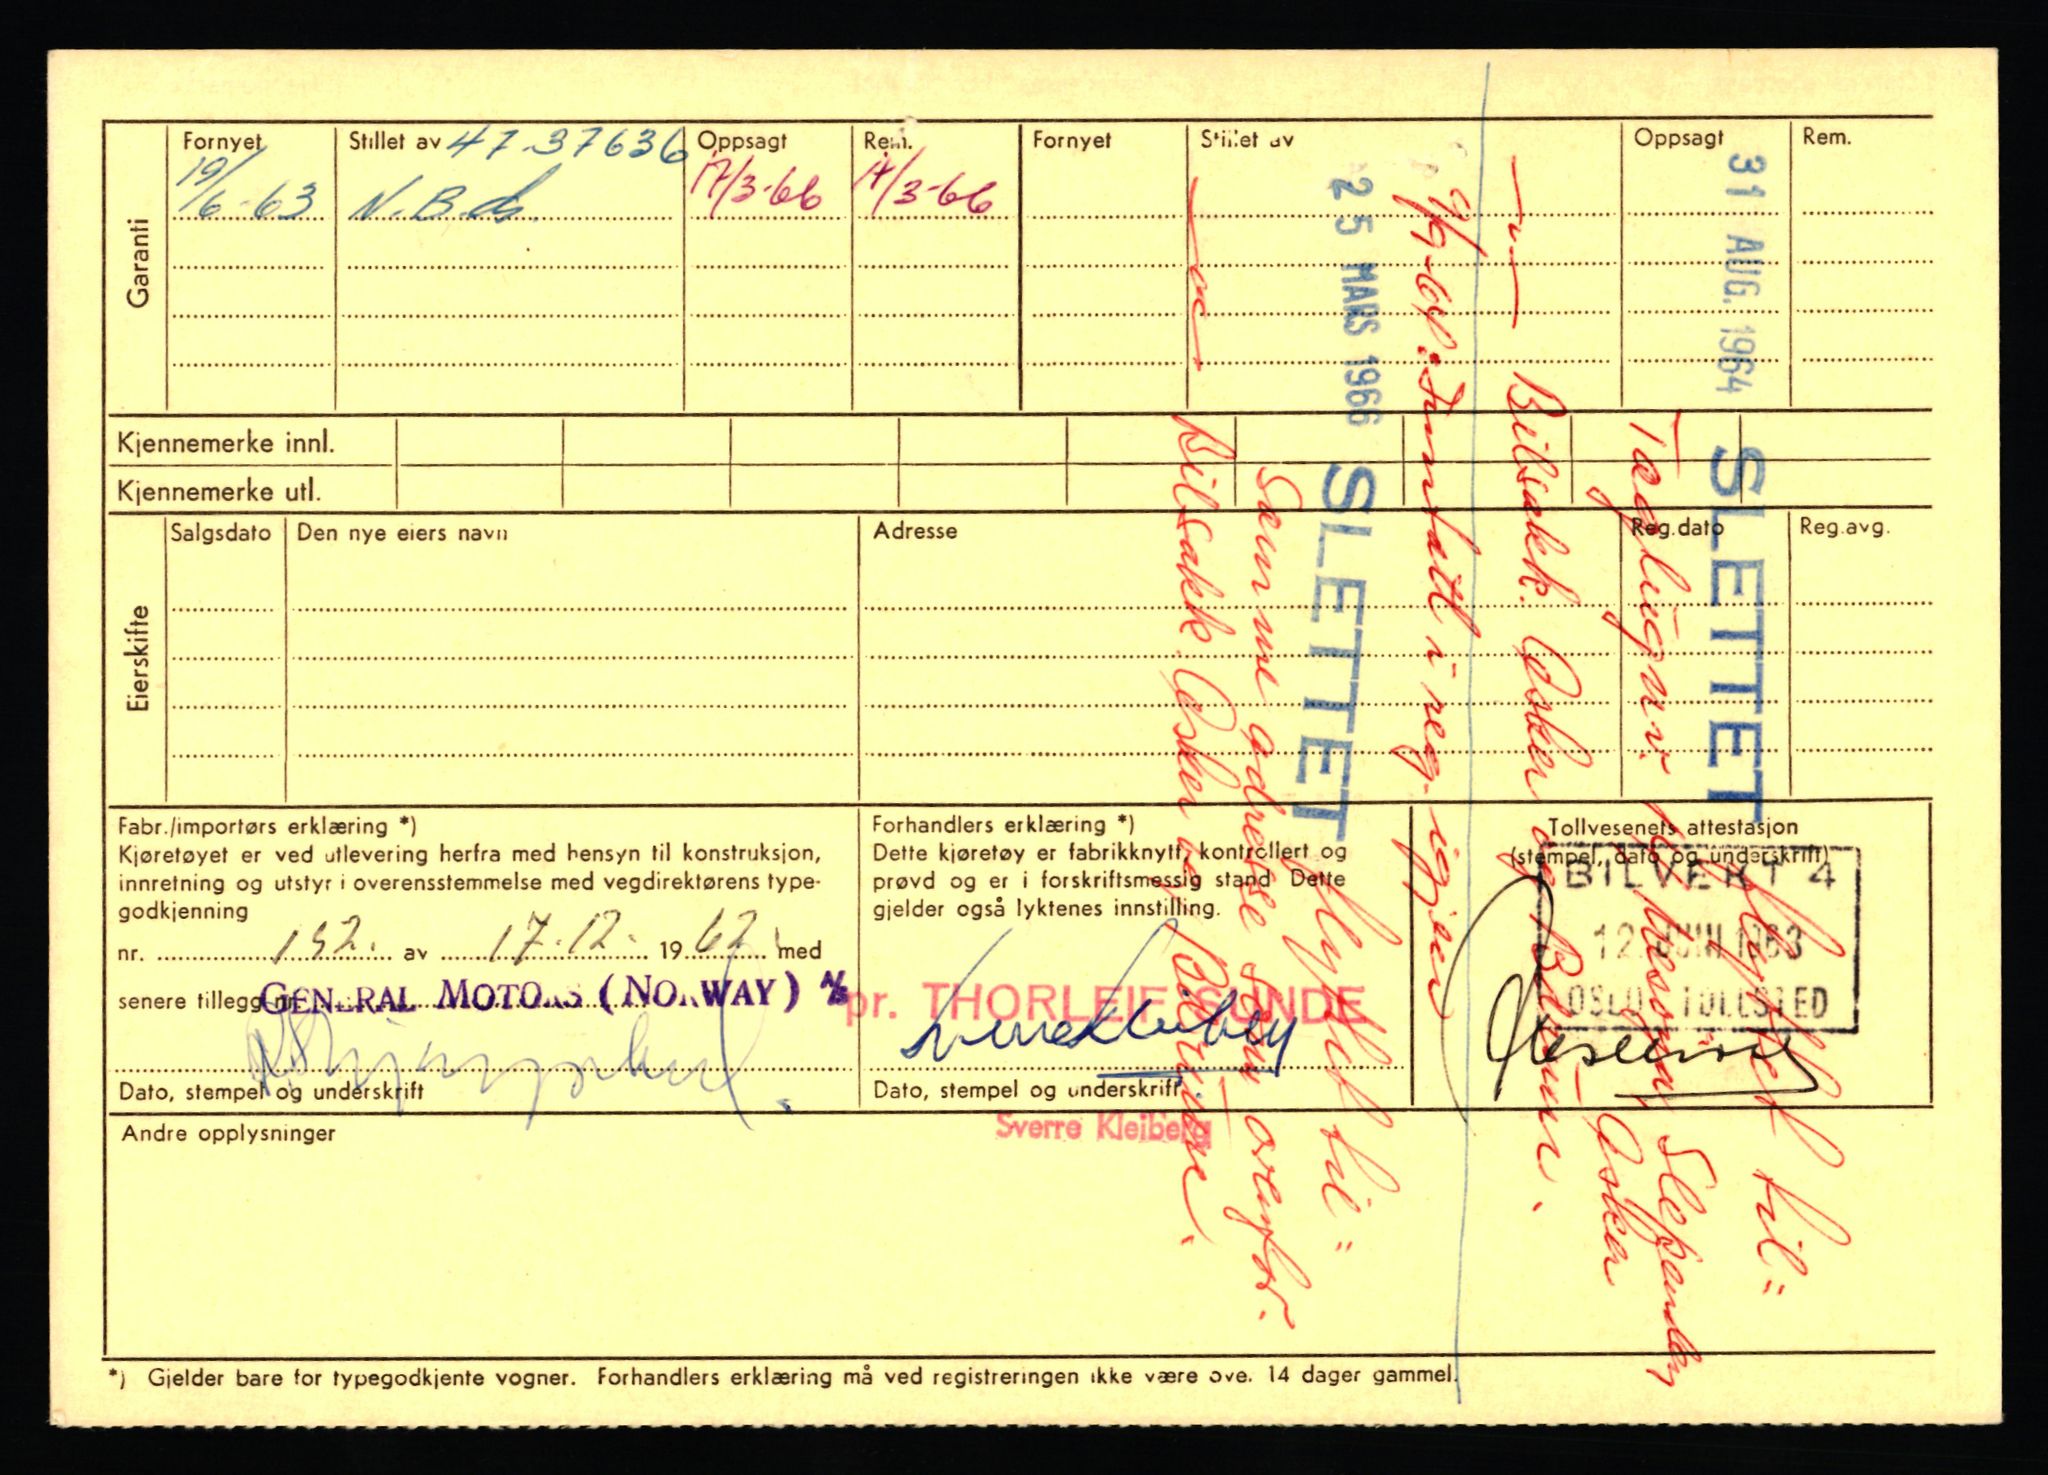 Garanti
Fornyet
Stillet av 47-37636
Oppsagt
Rem.
Fornyet
Stillet av
Oppsagt
Rem.
19/6-63
N.B.ds.
17/3-66
17/3-66
Kjennemerke innl.
Kjennemerke utl.
Eierskifte
Salgsdato
Den nye eiers navn
Adresse
Reg.dato
Reg.avg.
31 AUG. 1964 SLETTET
Flyttet til:
Bilsakk. Asker og Bærum.
9/9-64: Innsatt i reg. igjen
25 MARS 1966 SLETTET
Flyttet til:
Samme adresse som ovenfor.
Bilsakk. Asker og Bærum.
Fabr./importørs erklæring *)
Kjøretøyet er ved utlevering herfra med hensyn til konstruksjon,
innretning og utstyr i overensstemmelse med vegdirektørens type-
godkjenning
nr. 192. av 17.12. 1962 med
senere tillegg nr.
GENERAL MOTORS (NORWAY) A/S
Dato, stempel og underskrift
Forhandlers erklæring *)
Dette kjøretøy er fabrikknytt, kontrollert og
prøvd og er i forskriftsmessig stand Dette
gjelder også lyktenes innstilling.
pr. THORLEIF SUNDE
Sverre Kleiberg
Dato, stempel og underskrift
Sverre Kleiberg
Tollvesenets attestasjon
(stempel, dato og underskrift)
BILVEKT 4
12. JUNI 1963
OSLO TOLLSTED
Andre opplysninger
*) Gjelder bare for typegodkjente vogner. Forhandlers erklæring må ved registreringen ikke være ove. 14 dager gammel.